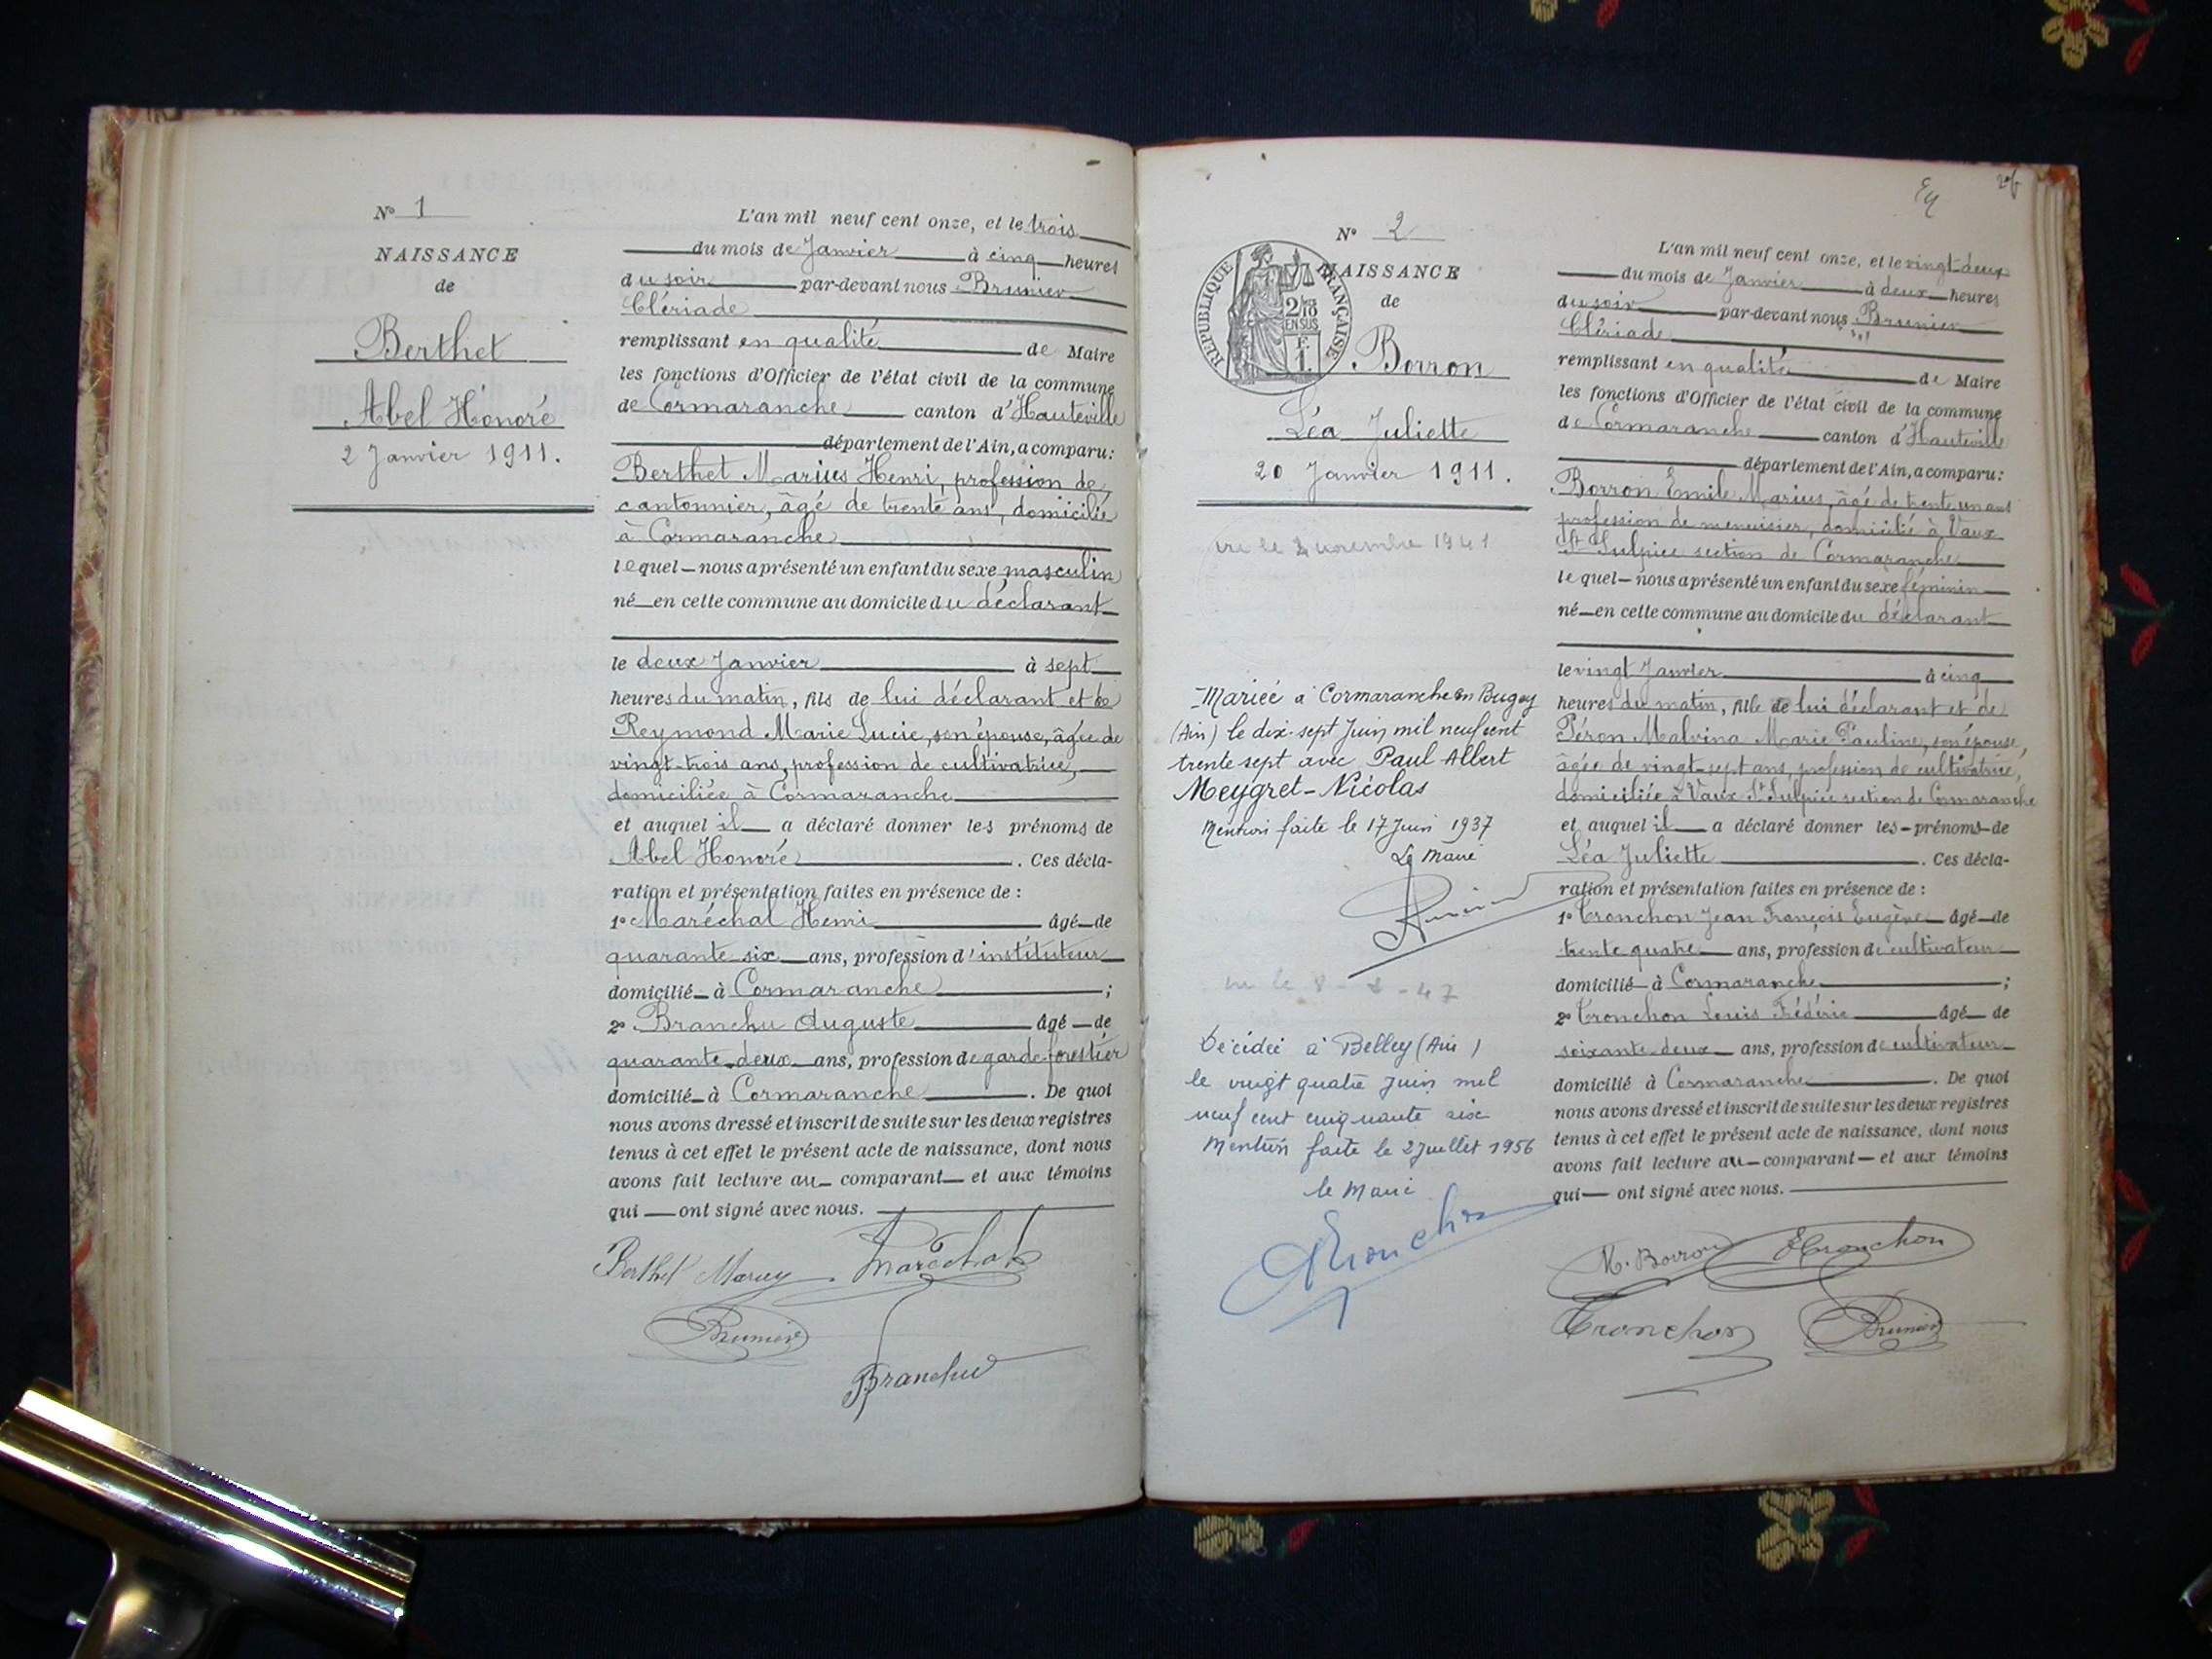 N° 1
NAISSANCE
de
Berthet
Abel Honoré
2 Janvier 1911.
L'an mil neuf cent onze, et le trois
du mois de Janvier à cinq heures
du soir par-devant nous Brunier
Clériade
remplissant en qualité de Maire
les fonctions d'Officier de l'état civil de la commune
de Cormaranche canton d'Hauteville
département de l'Ain, a comparu:
Berthet Marius Henri, profession de
cantonnier, âgé de trente ans, domicilié
à Cormaranche
lequel nous a présenté un enfant du sexe masculin
né en cette commune au domicile du déclarant
le deux Janvier à sept
heures du matin, fils de lui déclarant et de
Reymond Marie Lucie, son épouse, âgée de
vingt-trois ans, profession de cultivatrice,
domiciliée à Cormaranche
et auquel il a déclaré donner les prénoms de
Abel Honoré. Ces décla-
ration et présentation faites en présence de :
1° Maréchal Henri âgé de
quarante six ans, profession d'instituteur
domicilié à Cormaranche ;
2° Branchu Auguste âgé de
quarante-deux ans, profession de garde-forestier
domicilié à Cormaranche. De quoi
nous avons dressé et inscrit de suite sur les deux registres
tenus à cet effet le présent acte de naissance, dont nous
avons fait lecture au comparant et aux témoins
qui ont signé avec nous.
Berthet Maréchal
Brunier
Branchu
N° 2
REPUBLIQUE FRANÇAISE
2/10 EN SUS
F. 1.
NAISSANCE
de
Borron
Léa Juliette
20 Janvier 1911.
novembre 1941
Mariée à Cormaranche en Bugey
(Ain) le dix-sept Juin mil neuf cent
trente sept avec Paul Albert
Meygret-Nicolas
Mention faite le 17 Juin 1937
Le Maire
Décédée à Belley (Ain)
le vingt quatre juin mil
neuf cent cinquante six
Mention faite le 2 Juillet 1956
le Maire
Tronchon
L'an mil neuf cent onze, et le vingt-deux
du mois de Janvier à deux heures
du soir par-devant nous Brunier
Clériade
remplissant en qualité de Maire
les fonctions d'Officier de l'état civil de la commune
de Cormaranche canton d'Hauteville
département de l'Ain, a comparu:
Borron Emile Marius, âgé de trente un ans
profession de menuisier, domicilié à Vaux
St Sulpice section de Cormaranche
lequel nous a présenté un enfant du sexe féminin
né en cette commune au domicile du déclarant
le vingt Janvier à cinq
heures du matin, fille de lui déclarant et de
Péron Malvina Marie Pauline, son épouse,
âgée de vingt-sept ans, profession de cultivatrice,
domiciliée à Vaux St Sulpice section de Cormaranche
et auquel il a déclaré donner les prénoms de
Léa Juliette. Ces décla-
ration et présentation faites en présence de :
1° Tronchon Jean François Eugène âgé de
trente quatre ans, profession de cultivateur
domicilié à Cormaranche ;
2° Tronchon Louis Frédéric âgé de
soixante-deux ans, profession de cultivateur
domicilié à Cormaranche. De quoi
nous avons dressé et inscrit de suite sur les deux registres
tenus à cet effet le présent acte de naissance, dont nous
avons fait lecture au comparant et aux témoins
qui ont signé avec nous.
M. Borron Tronchon
Tronchon Brunier